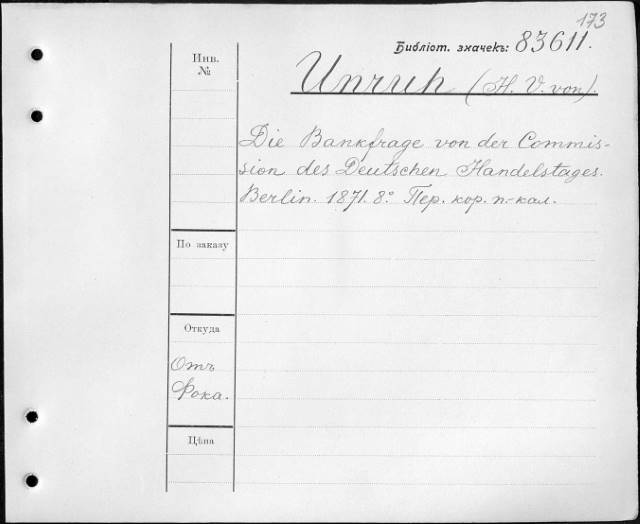 173
Библіот. значекъ: 83611.
Инв.
№
Unruh (H. V. von).
Die Bankfrage von der Commis-
sion des Deutschen Handelstages.
Berlin. 1871. 8° Пер. кор. п.-кал.
По заказу
Откуда
Отъ
Фока.
Цѣна